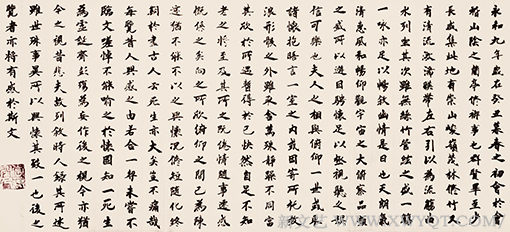 永和九年歲在癸丑暮春之初會於會
稽山陰之蘭亭脩禊事也羣賢畢至少
長咸集此地有崇山峻領茂林脩竹又
有清流激湍暎帶左右引以為流觴曲
水列坐其次雖無絲竹管絃之盛一觴
一詠亦足以暢敘幽情是日也天朗氣
清惠風和暢仰觀宇宙之大俯察品類
之盛所以遊目騁懷足以極視聽之娛
信可樂也夫人之相與俯仰一世或取
諸懷抱晤言一室之內或因寄所託放
浪形骸之外雖取舍萬殊靜躁不同當
其欣於所遇蹔得於己快然自足不知
老之將至及其所之既倦情隨事遷感
慨係之矣向之所欣俯仰之間已為陳
迹猶不能不以之興懷況脩短隨化終
期於盡古人云死生亦大矣豈不痛哉
每覽昔人興感之由若合一契未嘗不
臨文嗟悼不能喻之於懷固知一死生
為虛誕齊彭殤為妄作後之視今亦猶
今之視昔悲夫故列敘時人錄其所述
雖世殊事異所以興懷其致一也後之
覽者亦將有感於斯文